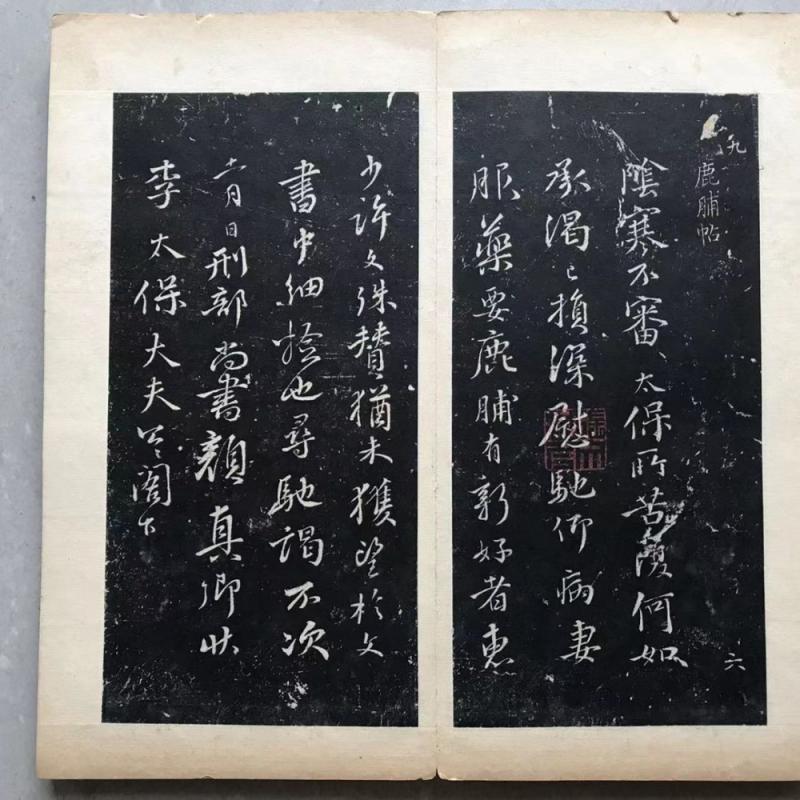 九
鹿脯帖
陰寒不審、太保所苦復何如
承渴已損深慰馳仰病妻
服藥要鹿脯有新好者惠
六
少許文殊贊猶未獲望於文
書中細撿也尋馳謁不次
十一月日刑部尚書顏真卿狀
李太保大夫公閣下